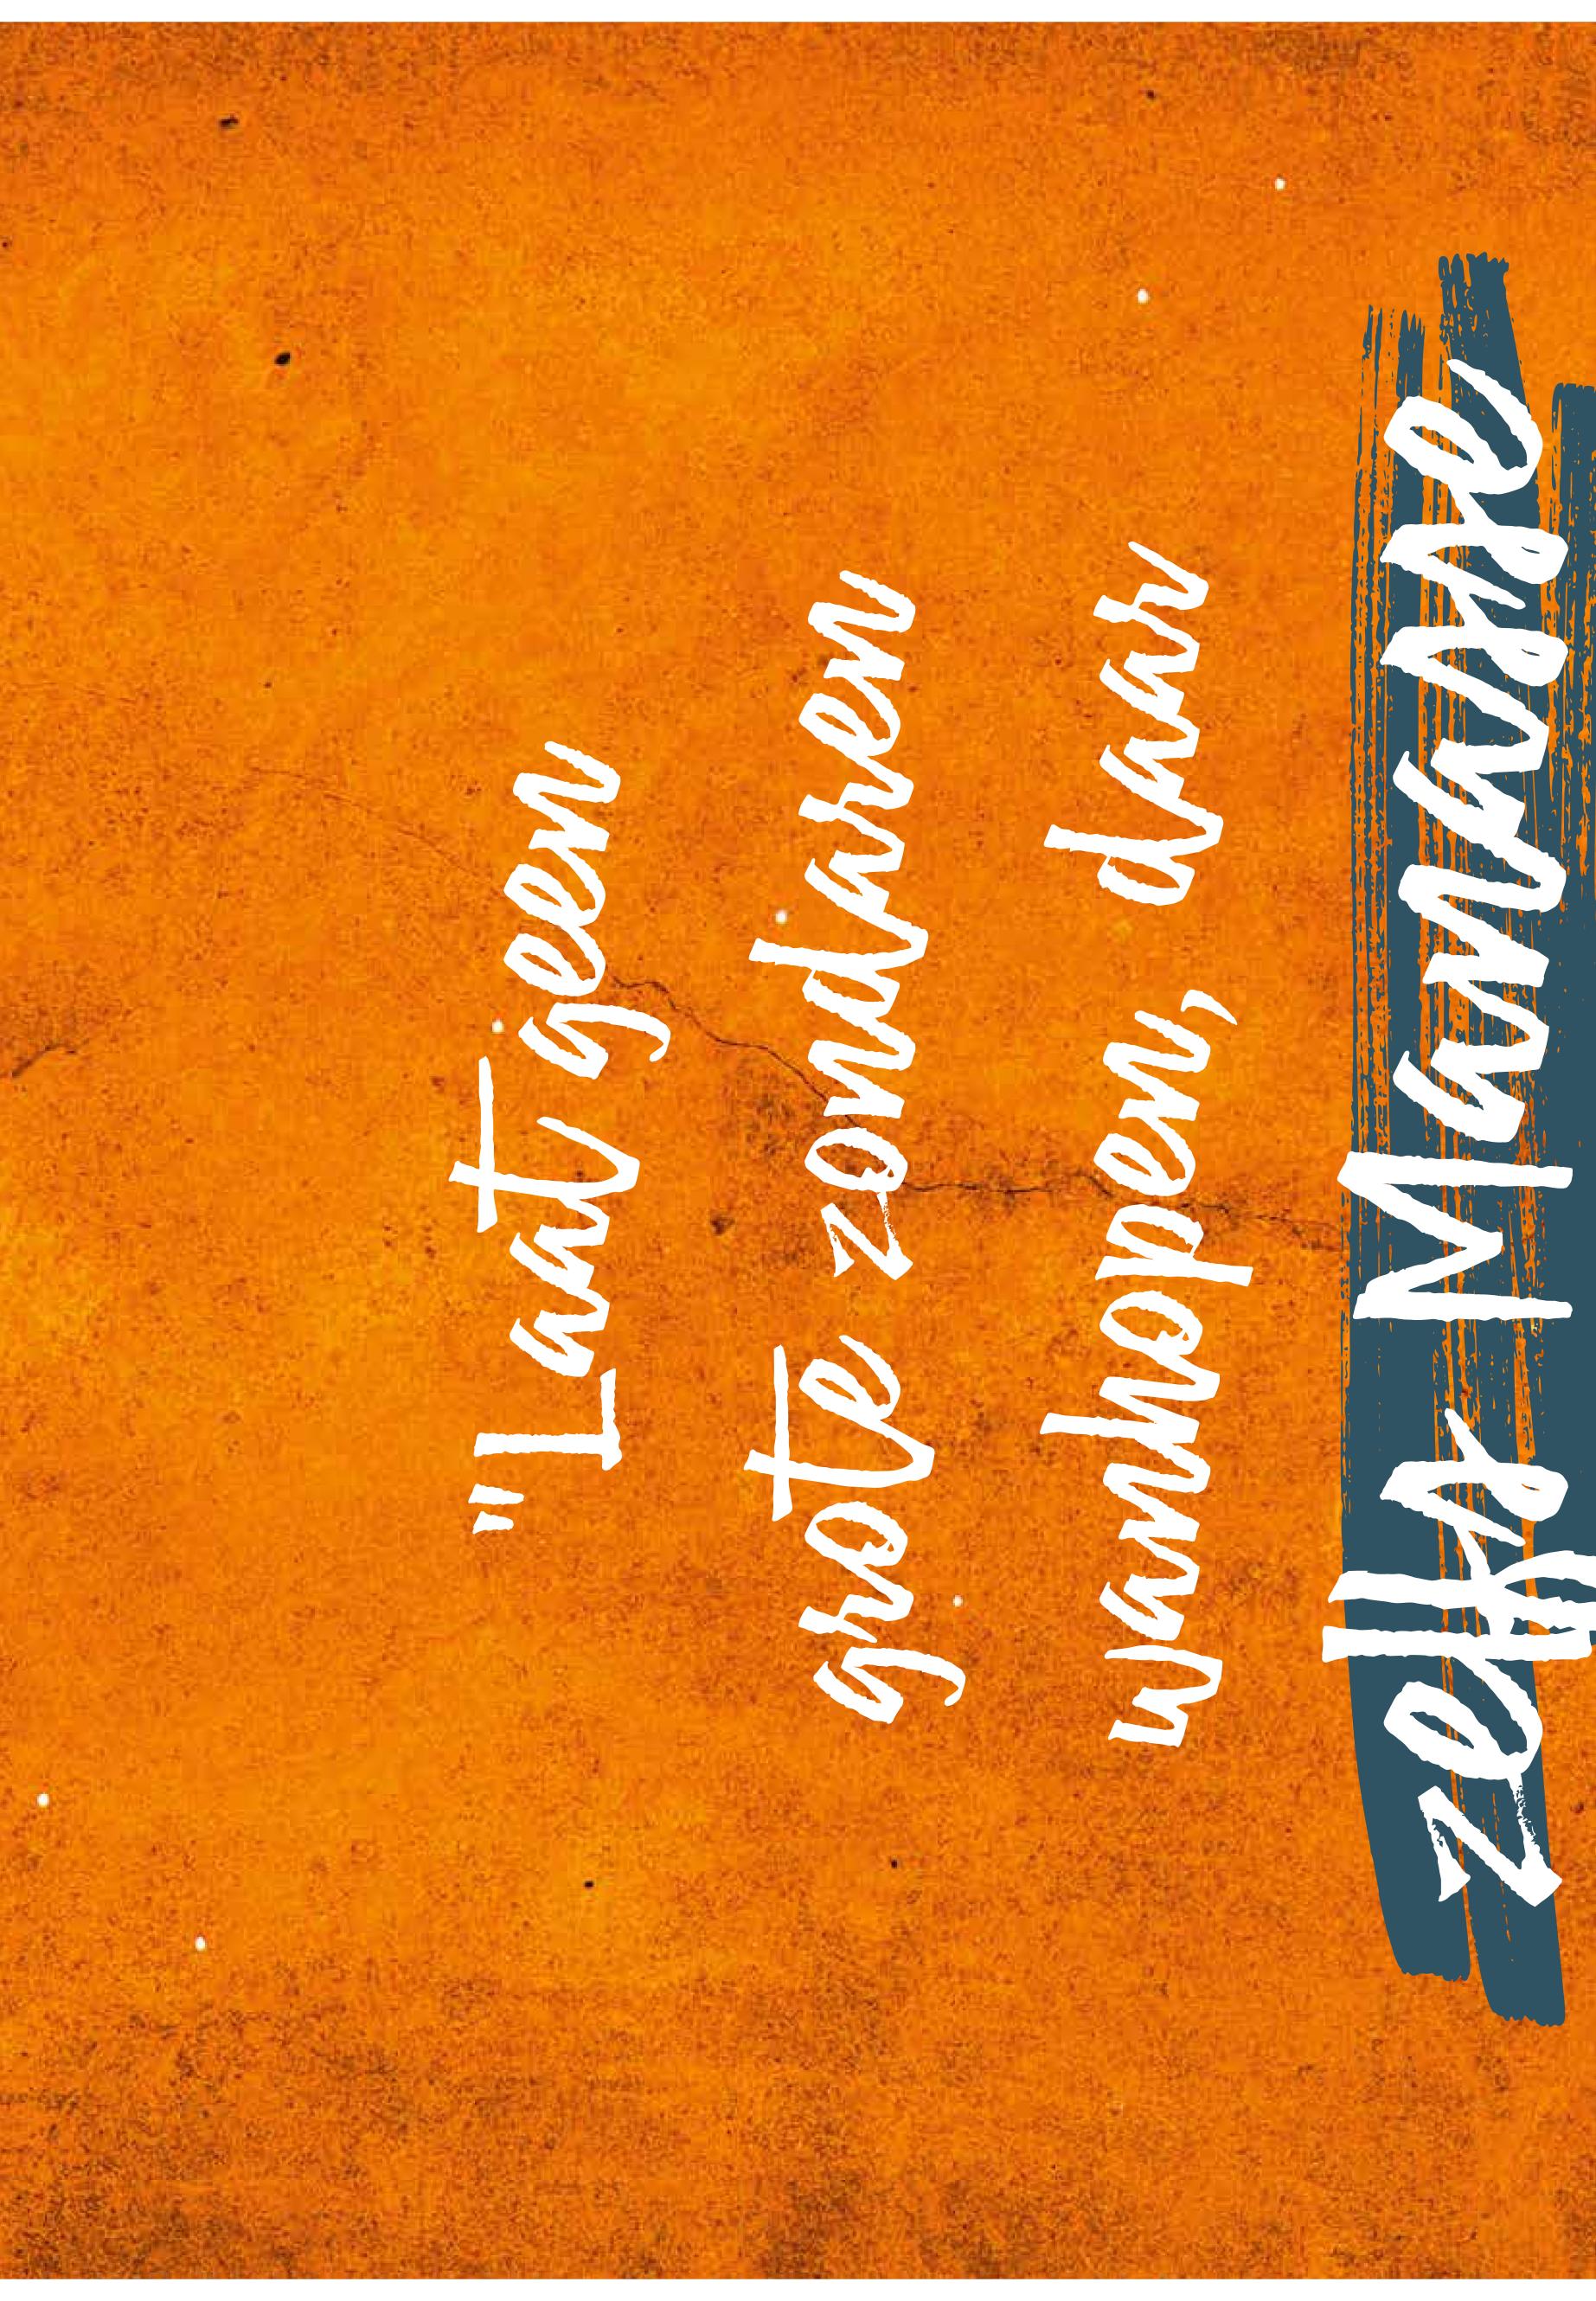 "Laat geen
grote zondaren
wanhopen, daar
zelfs Manasse